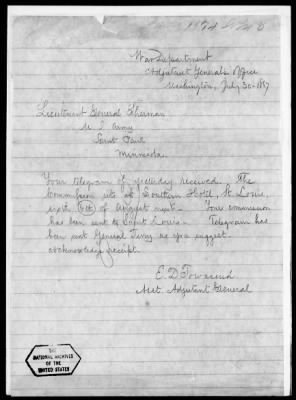 War Department
Adjutant General's Office
Washington, July 30. 1867
Lieutenant General Sherman
U. S. Army
Saint Paul
Minnesota.
Your telegram of yesterday received. The
Commission sits at Southern Hotel, St Louis,
sixth (6th) of August next. Your commission
has been sent to Saint Louis. Telegram has
been sent General Terry as you suggest.
acknowledge receipt.
E. D. Townsend
Asst. Adjutant General
NATIONAL ARCHIVES
OF THE
UNITED STATES